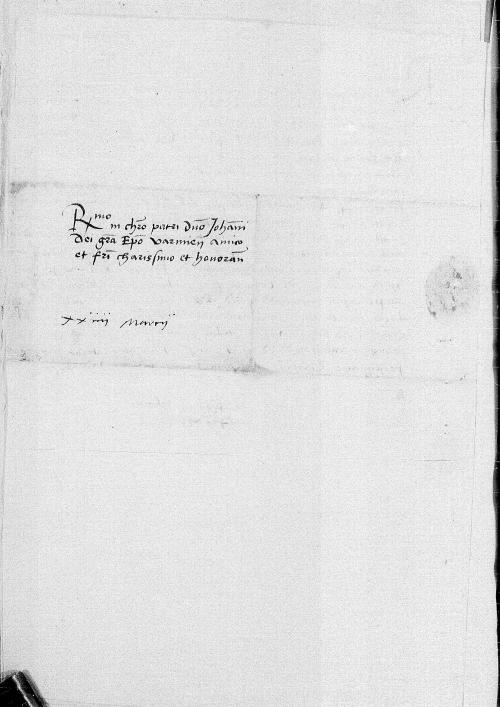 Rmo in chro patri dno Johani
dei gra Epo Varmien amico
et fri charissimo et honoran
xxiiii Martii